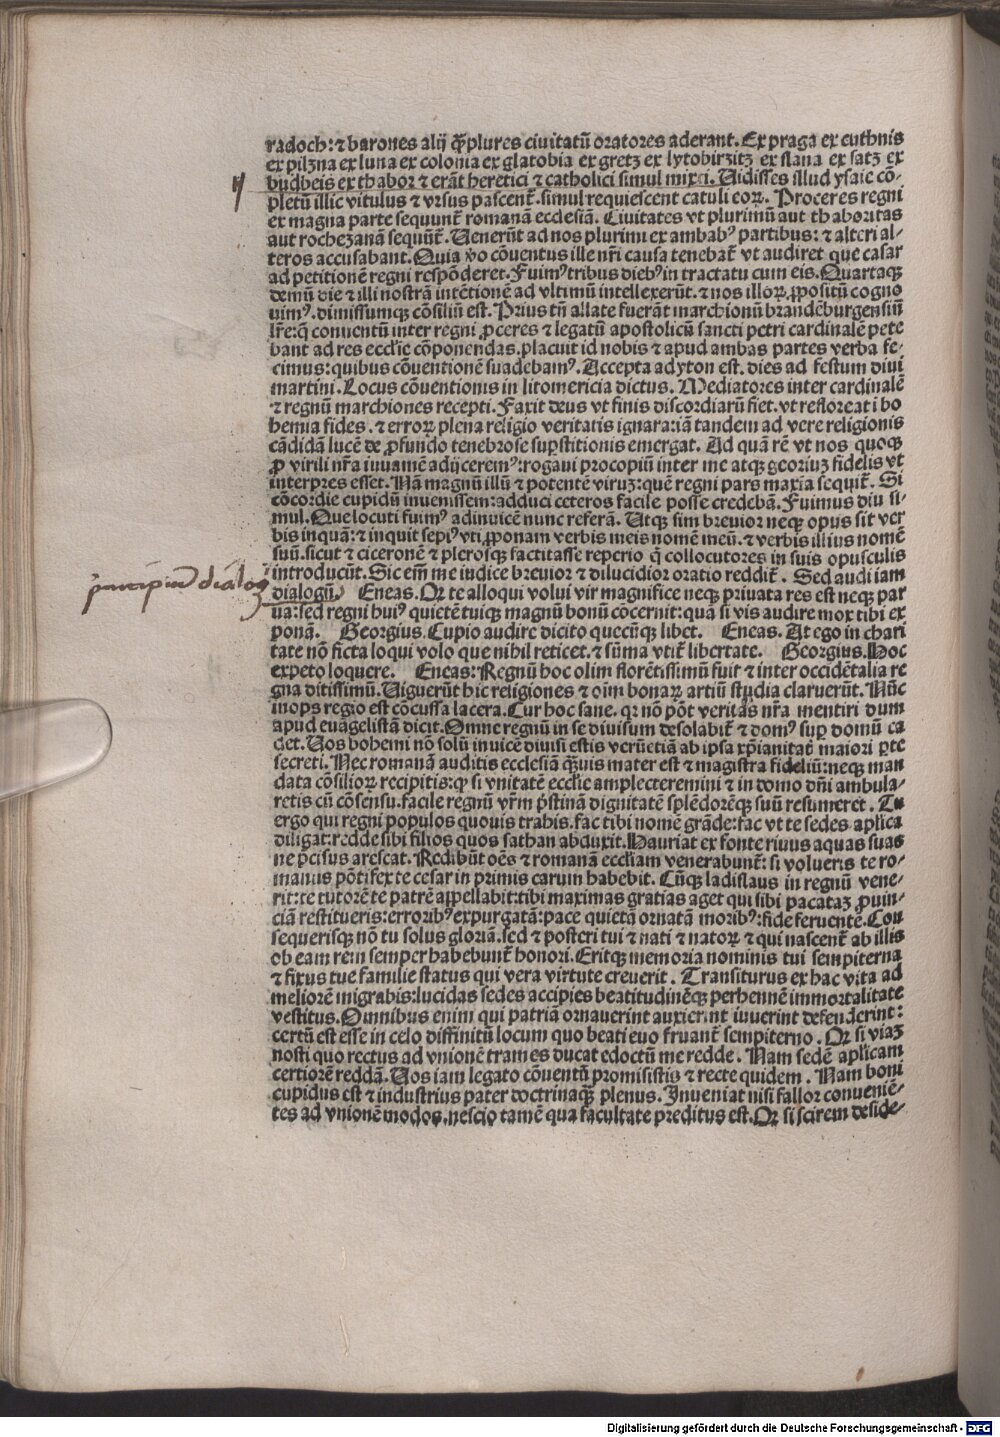 radoch: ⁊ barones alij q̃plures ciuitatũ oratores aderant. Ex praga ex cuthnis
ex pilzna ex luna ex colonia ex glatobia ex gretz ex lytobirzitz ex slana ex satz ex
budbeis ex thabor ⁊ erãt heretici ⁊ catholici simul mixti. Uidisses illud ysaie cõ-
pletũ illic vitulus ⁊ vrsus pascent̃. simul requiescent catuli eoꝝ. Proceres regni
ex magna parte sequunt̃ romanã ecclesiã. Ciuitates vt plurimũ aut thaboritas
aut rochezanã sequũt̃. Uenerũt ad nos plurimi ex ambabꝰ partibus: ⁊ alteri al-
teros accusabant. Quia v̊o cõuentus ille nr̃i causa tenebat̃ vt audiret que cesar
ad petitionẽ regni respõderet. Fuimꝰ tribus diebꝰ in tractatu cum eis. Quartaqꝫ
demũ die ⁊ illi nostrã intẽtionẽ ad vltimũ intellexerũt. ⁊ nos illoꝝ ꝓpositũ cogno
uimꝰ. dimissumqꝫ cõsiliũ est. Prius tñ allate fuerãt marchionũ brandẽburgensiũ
lr̃e: q̃ conuentũ inter regni ꝓceres ⁊ legatũ apostolicũ sancti petri cardinalẽ pete
bant ad res ecclie cõponendas. placuit id nobis ⁊ apud ambas partes verba fe-
cimus: quibus cõuentionẽ suadebamꝰ. Accepta adyton est. dies ad festum diui
martini. Locus cõuentionis in litomericia dictus. Mediatores inter cardinalẽ
⁊ regnũ marchiones recepti. Faxit deus vt finis discordiarũ fiet. vt refloreat i bo
hemia fides. ⁊ erroꝝ plena religio veritatis ignara: iã tandem ad vere religionis
cãdidã lucẽ de ꝓfundo tenebrose suꝑstitionis emergat. Ad quã rẽ vt nos quoqꝫ
ꝓ virili nr̃a iuuamẽ adijceremꝰ: rogaui procopiũ inter me atqꝫ georiuꝫ fidelis vt
interpres esset. Nã magnũ illũ ⁊ potentẽ viruꝫ: quẽ regni pars maxĩa sequit̃. Si
cõcordie cupidũ inuenissem: adduci ceteros facile posse credebã. Fuimus diu si-
mul. Que locuti fuimꝰ adinuicẽ nunc referã. Utqꝫ sim breuior neqꝫ opus sit ver
bis inquã: ⁊ inquit sepiꝰ vti, ꝓponam verbis meis nomẽ meũ. ⁊ verbis illius nomẽ
suũ. sicut ⁊ ciceronẽ ⁊ plerosqꝫ factitasse reperio q̃ collocutores in suis opusculis
introducũt. Sic em̃ me iudice breuior ⁊ dilucidior oratio reddit̃. Sed audi iam
dialogũ. Eneas. Or te alloqui volui vir magnifice neqꝫ priuata res est neqꝫ par
ua: sed regni huiꝰ quietẽ tuiqꝫ magnũ bonũ cõcernit: quã si vis audire mox tibi ex
ponã. Georgius. Cupio audire dicito quecũqꝫ libet. Eneas. At ego in chari
tate nõ ficta loqui volo que nihil reticet. ⁊ sũma vtit̃ libertate. Georgius. Hoc
expeto loquere. Eneas: Regnũ hoc olim florẽtissimũ fuit ⁊ inter occidẽtalia re
gna ditissimũ. Uiguerũt hic religiones ⁊ oĩm bonaꝝ artiũ studia claruerũt. Nũc
inops regio est cõcussa lacera. Cur hoc sane. qꝛ nõ põt veritas nr̃a mentiri dum
apud euãgelistã dicit. Omne regnũ in se diuisum desolabit̃ ⁊ domꝰ suꝑ domũ ca
det. Uos bohemi nõ solũ inuicẽ diuisi estis verũetiã ab ipsa xp̃ianitate maiori ꝑte
secreti. Nec romanã auditis ecclesiã q̃uis mater est ⁊ magistra fideliũ: neqꝫ man
data cõsilioꝝ recipitis: ꝙ si vnitatẽ ecclie amplecteremini ⁊ in domo dñi ambula-
retis cũ cõsensu. facile regnũ vr̃m p̃stinã dignitatẽ splẽdorẽqꝫ suũ resumeret. Tu
ergo qui regni populos quouis trahis. fac tibi nomẽ grãde: fac vt te sedes aplica
diligat: redde sibi filios quos sathan abduxit. Hauriat ex fonte riuus aquas suas
ne p̃cisus arescat. Redibũt oẽs ⁊ romanã eccliam venerabunt̃: si volueris te ro-
manus põtifex te cesar in primis carum habebit. Cũqꝫ ladislaus in regnũ vene-
rit: te tutorẽ te patrẽ appellabit: tibi maximas gratias aget qui sibi pacataꝫ ꝓuin-
ciã restitueris: erroribꝰ expurgatã: pace quietã ornatã moribꝰ: fide feruentẽ. Con
sequerisqꝫ nõ tu solus gloriã. sed ⁊ posteri tui ⁊ nati ⁊ natoꝝ ⁊ qui nascent̃ ab illis
ob eam rem semper habebunt̃ honori. Eritqꝫ memoria nominis tui sempiterna
⁊ fixus tue familie status qui vera virtute creuerit. Transiturus ex hac vita ad
meliorẽ migrabis: lucidas sedes accipies beatitudinẽqꝫ perhennẽ immortalitate
vestitus. Omnibus enim qui patriã ornauerint auxerint iuuerint defenderint:
certũ est esse in celo diffinitũ locum quo beati euo fruant̃ sempiterno. Qꝛ si viaꝫ
nosti quo rectus ad vnionẽ trames ducat edoctũ me redde. Nam sedẽ aplicam
certiorẽ reddã. Uos iam legato cõuentũ promisistis ⁊ recte quidem. Nam boni
cupidus est ⁊ industrius pater doctrinaqꝫ plenus. Inueniat nisi fallor conueniẽ-
tes ad vnionẽ modos. nescio tamẽ qua facultate preditus est. Qꝛ si scirem deside-
principiũ dialog
Digitalisierung gefördert durch die Deutsche Forschungsgemeinschaft - DFG